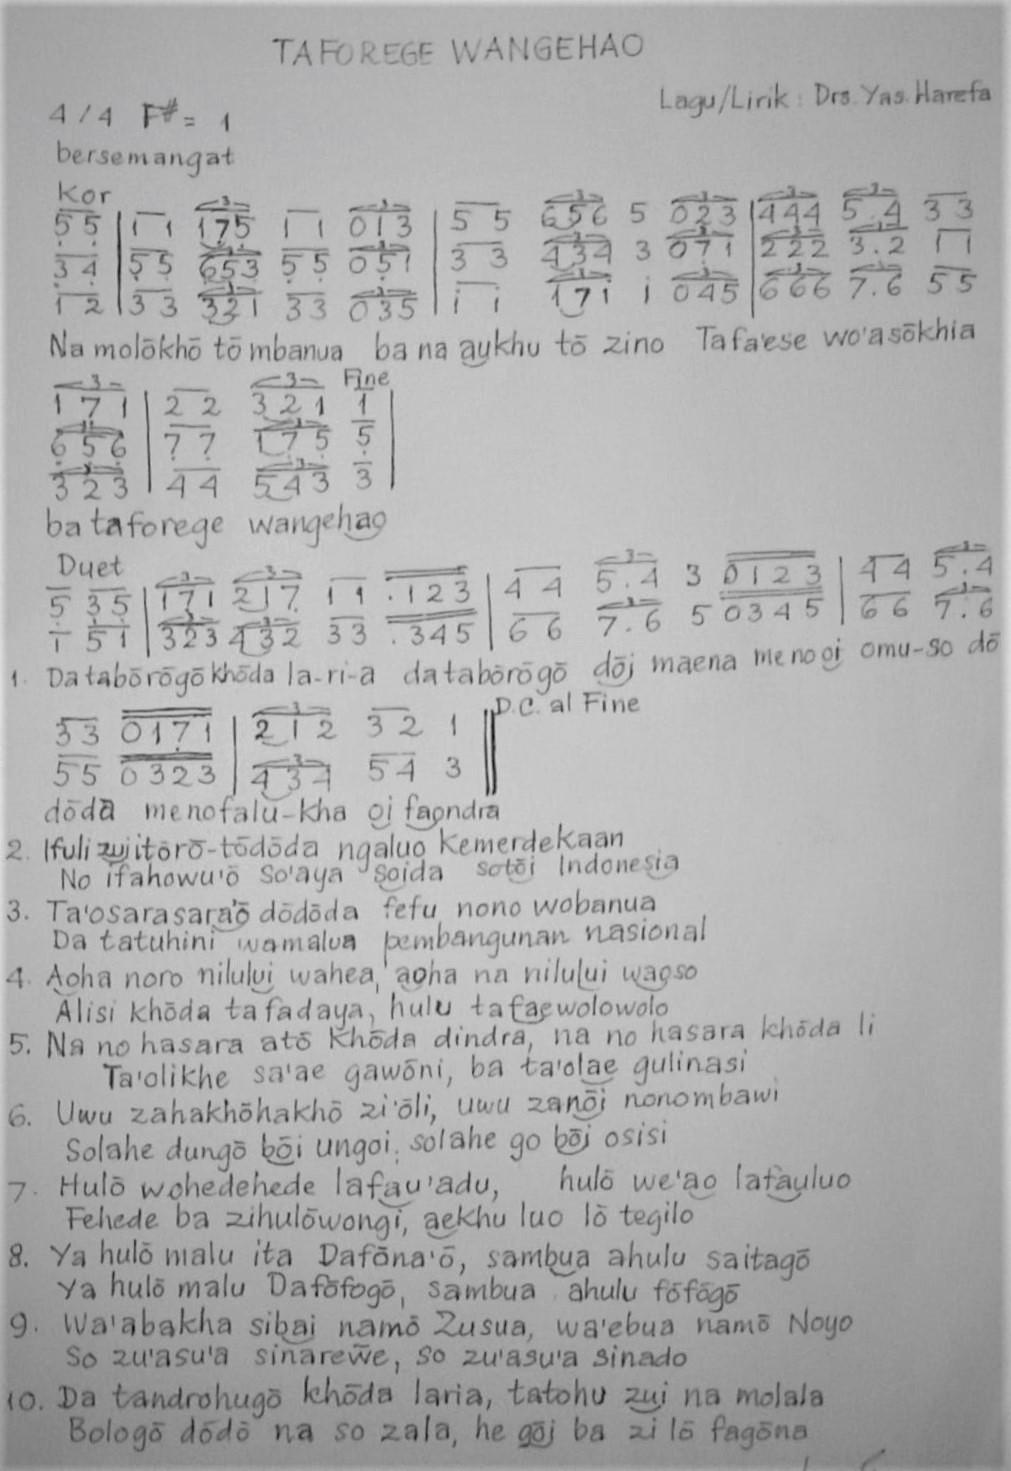 TAFOREGE WANGEHAO
Lagu/Lirik : Drs. Yas. Harefa
4/4 F# = 1
bersemangat
Kor
5 5 | 1 1 1 7 5 1 1 0 1 3 | 5 5 6 5 6 5 0 2 3 | 4 4 4 5 . 4 3 3
3 4 | 5 5 6 5 3 5 5 0 5 1 | 3 3 4 3 4 3 0 7 1 | 2 2 2 3 . 2 1 1
1 2 | 3 3 3 2 1 3 3 0 3 5 | i i 1 7 i i 0 4 5 | 6 6 6 7 . 6 5 5
Na molōkhō tō mbanua ba na aukhu tō zino Tafa'ese wo'asōkhia
Fine
1 7 1 | 2 2 3 2 1 1 |
6 5 6 | 7 7 1 7 5 5
3 2 3 | 4 4 5 4 3 3
ba taforege wangehao
Duet
5 3 5 | 1 7 1 2 1 7 1 1 . 1 2 3 | 4 4 5 . 4 3 0 1 2 3 | 4 4 5 . 4
1 5 1 | 3 2 3 4 3 2 3 3 . 3 4 5 | 6 6 7 . 6 5 0 3 4 5 | 6 6 7 . 6
1. Da tabōrōgō khōda la-ri-a da tabōrōgō dōi maena menooi omu-so dō
D.C. al Fine
3 3 0 1 7 1 | 2 1 2 3 2 1
5 5 0 3 2 3 | 4 3 4 5 4 3
dōda menofalu-kha oi faondra
2. Ifuli zuitōrō-tōdōda ngaluo Kemerdekaan
No ifahowu'ō so'aya soida sotōi Indonesia
3. Ta'osarasara'ō dōdōda fefu nono wobanua
Da tatuhini wamalua pembangunan nasional
4. Aoha noro nilului wahea, aoha na nilului waoso
Alisi khōda tafadaya, hulu tafaewolowolo
5. Na no hasara atō khōda dindra, na no hasara khōda li
Ta'olikhe sa'ae gawōni, ba ta'olae gulinasi
6. Uwu zahakhōhakhō zi'ōli, uwu zanōi nonombawi
Solahe dungō bōi ungoi, solahe go bōi osisi
7. Hulō wohedehede lafau'adu, hulō we'ao lafauluo
Fehede ba zihulōwongi, aekhu luo lō tegilo
8. Ya hulō malu ita Dafōna'ō, sambua ahulu saitagō
Ya hulō malu Dafōfogō, sambua ahulu fōfōgō
9. Wa'abakha sibai namō Zusua, wa'ebua namō Noyo
So zu'asu'a sinarewe, so zu'asu'a sinado
10. Da tandrohugō khōda laria, tatohu zui na molala
Bologō dōdō na so zala, he gōi ba zi lō fagōna